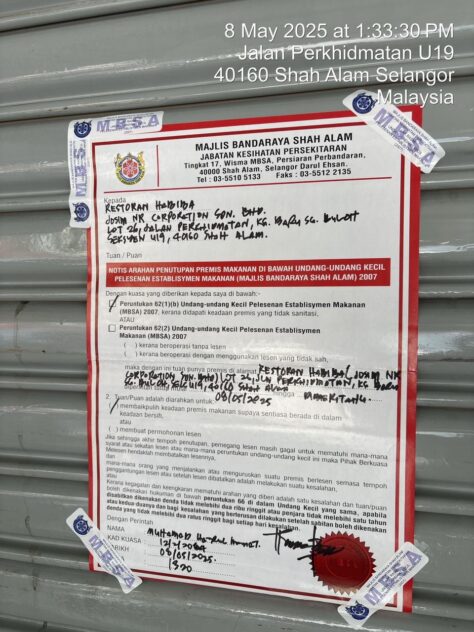 8 May 2025 at 1:33:30 PM
Jalan Perkhidmatan U19
40160 Shah Alam Selangor
Malaysia
M.B.S.A
M.B.S.A
MAJLIS BANDARAYA SHAH ALAM
JABATAN KESIHATAN PERSEKITARAN
Tingkat 17, Wisma MBSA, Persiaran Perbandaran,
40000 Shah Alam, Selangor Darul Ehsan.
Tel : 03-5510 5133 Faks : 03-5512 2135
Kepada
RESTORAN HABIBA
JOSIM NR CORPORATION SDN. BHD.
LOT 26, JALAN PERKHIDMATAN, KG. BARU SG. BULOH
SEKSYEN U19, 40160 SHAH ALAM.
Tuan / Puan
NOTIS ARAHAN PENUTUPAN PREMIS MAKANAN DI BAWAH UNDANG-UNDANG KECIL
PELESENAN ESTABLISYMEN MAKANAN (MAJLIS BANDARAYA SHAH ALAM) 2007
Dengan kuasa yang diberikan kepada saya di bawah:-
Peruntukan 62(1)(b) Undang-undang Kecil Pelesenan Establisymen Makanan
(MBSA) 2007. kerana didapati keadaan premis yang tidak sanitasi,
ATAU
Peruntukan 62(2) Undang-undang Kecil Pelesenan Establisymen
Makanan (MBSA) 2007
( ) kerana beroperasi tanpa lesen
( ) kerana beroperasi dengan menggunakan lesen yang tidak sah,
maka dengan ini tuan punya premis di alamat RESTORAN HABIBA (JOSIM NR
CORPORATION SDN. BHD) LOT 26, JLN PERKHIDMATAN, KG BARU
SG. BULOH, SEK U19, 40160 SHAH ALAM
08/05/2025
2. Tuan/Puan adalah diarahkan untuk:
(/) membaikpulih keadaan premis makanan supaya sentiasa berada di dalam
keadaan bersih,
atau
( ) membuat permohonan lesen
Jika sehingga akhir tempoh penutupan, pemegang lesen masih gagal untuk mematuhi mana-mana
syarat atau sekatan lesen atau mana-mana peruntukan undang-undang kecil ini maka Pihak Berkuasa
Melesen hendaklah membatalkan lesennya.
dan
mana-mana orang yang menjalankan atau mengusahakan suatu premis berlesen semasa tempoh
penggantungan lesen atau setelah lesen dibatalkan adalah melakukan suatu kesalahan,
atau
Kerana kegagalan dan keengkaran mematuhi arahan yang diberi adalah satu kesalahan dan tuan/puan
boleh dikenakan hukuman di bawah peruntukan 66 di dalam Undang Kecil yang sama, apabila
disabitkan dikenakan denda tidak melebihi dua ribu ringgit atau penjara tidak melebihi satu tahun
atau kedua-duanya dan bagi kesalahan yang berterusan dilakukan setelah sabitan boleh dikenakan
denda yang tidak melebihi dua ratus ringgit bagi setiap hari kesalahan.
Dengan Perintah
NAMA
KAD KUASA
TARIKH 08/05/2025.
1320
M.B.S.A
M.B.S.A